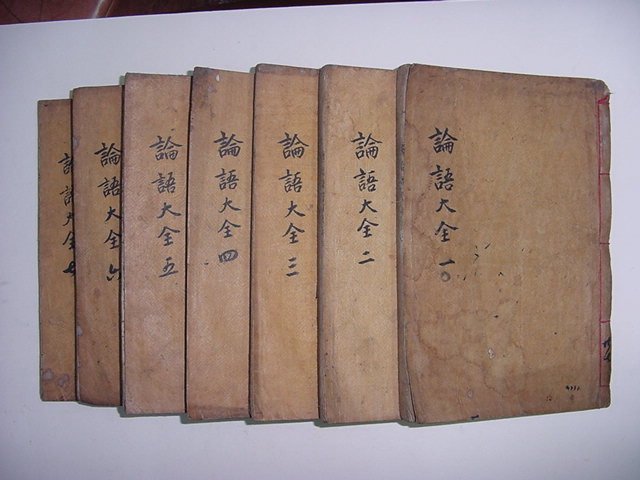 論語大全 一〇
論語大全 二
論語大全 三
論語大全 四
論語大全 五
論語大全 六
論語大全 七